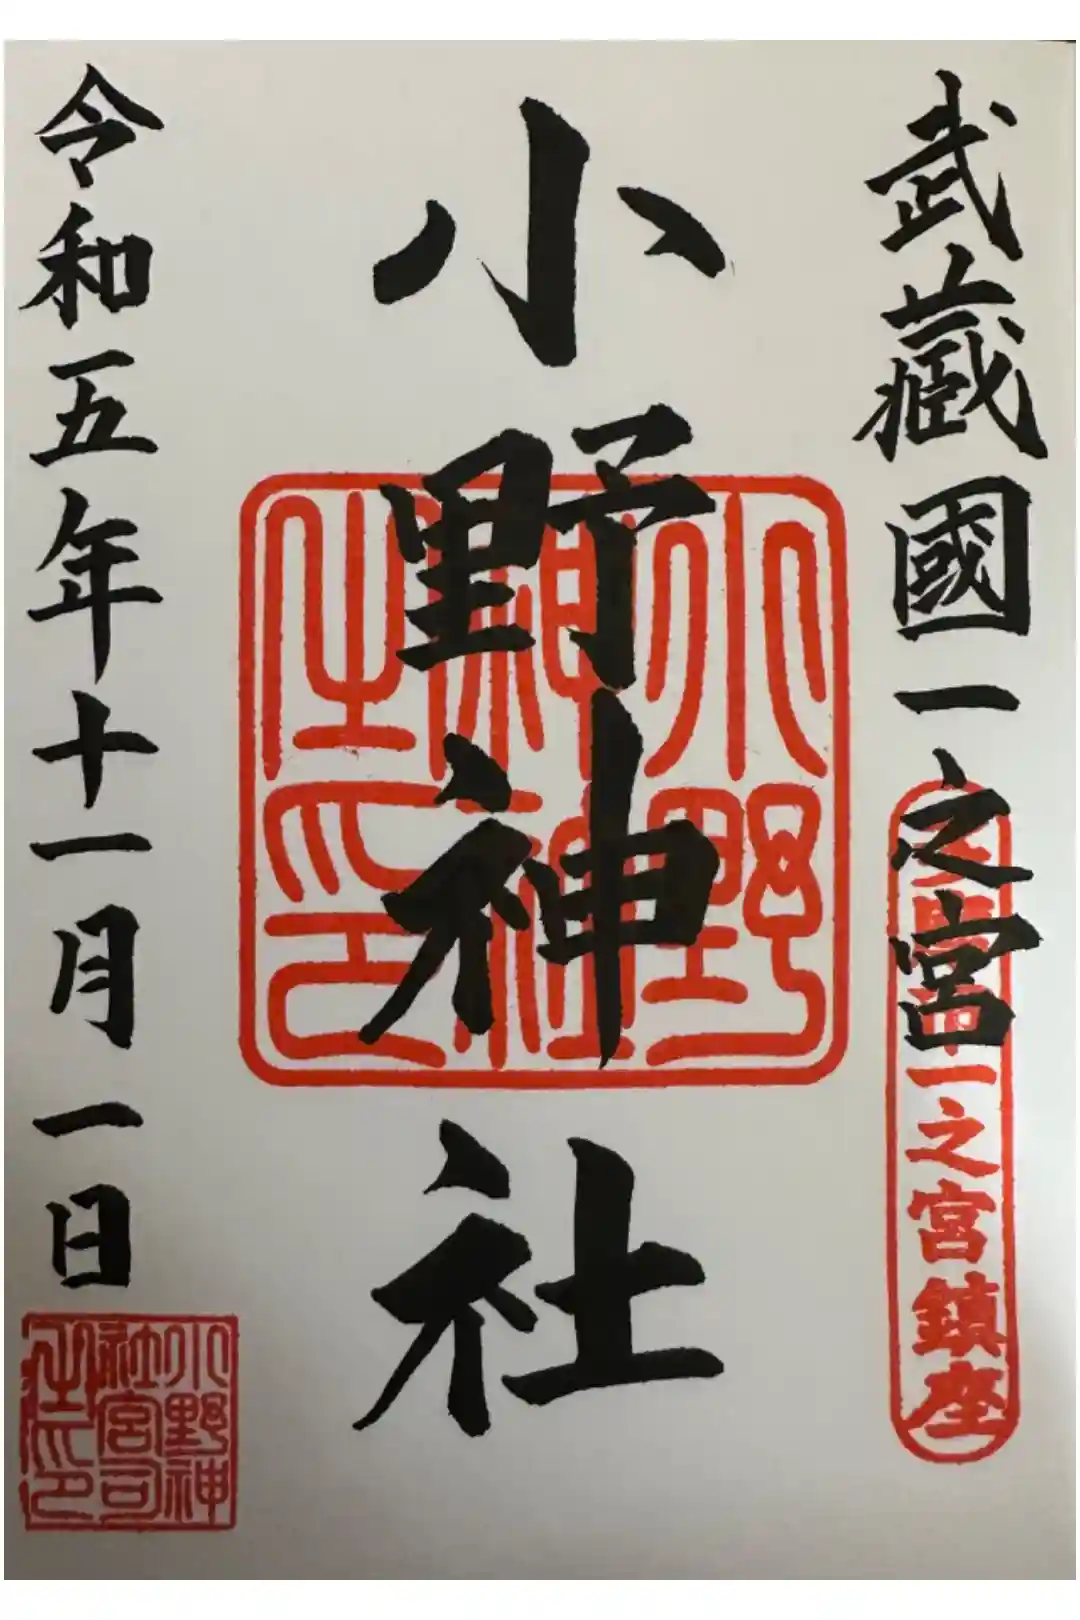 武藏國一之宮
一之宮鎮座
小野神社
小野神社之印
令和五年十一月一日
小野神社宮司之印